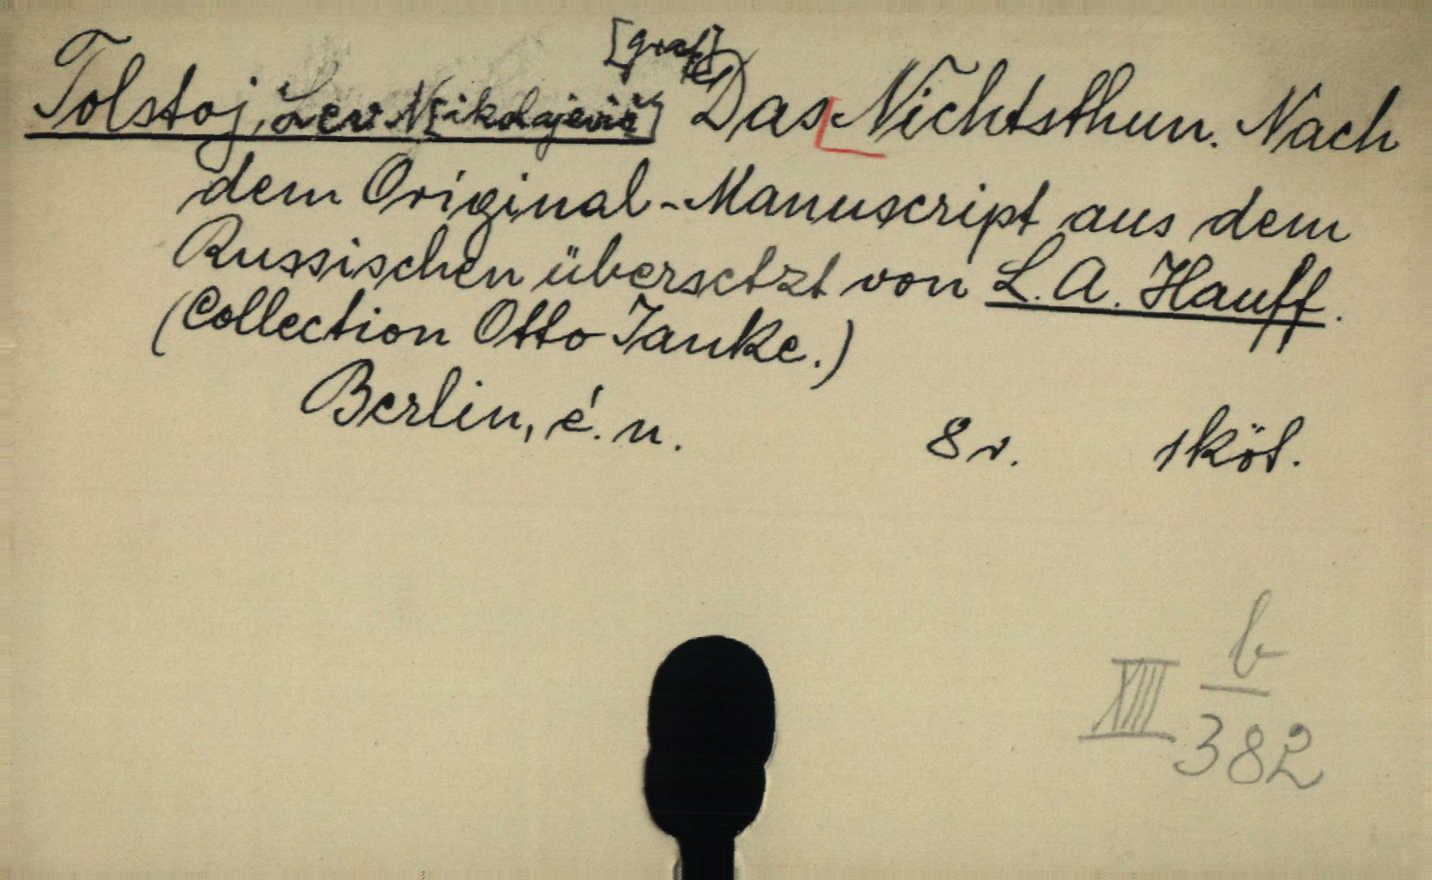 [graf]
Tolstoj, Lev N[ikolajevič] Das Nichtsthun. Nach
dem Original-Manuscript aus dem
Russischen übersetzt von L. A. Hauff.
(Collection Otto Janke.)
Berlin, é. n. 8 r. 1 köt.
XIII b
382